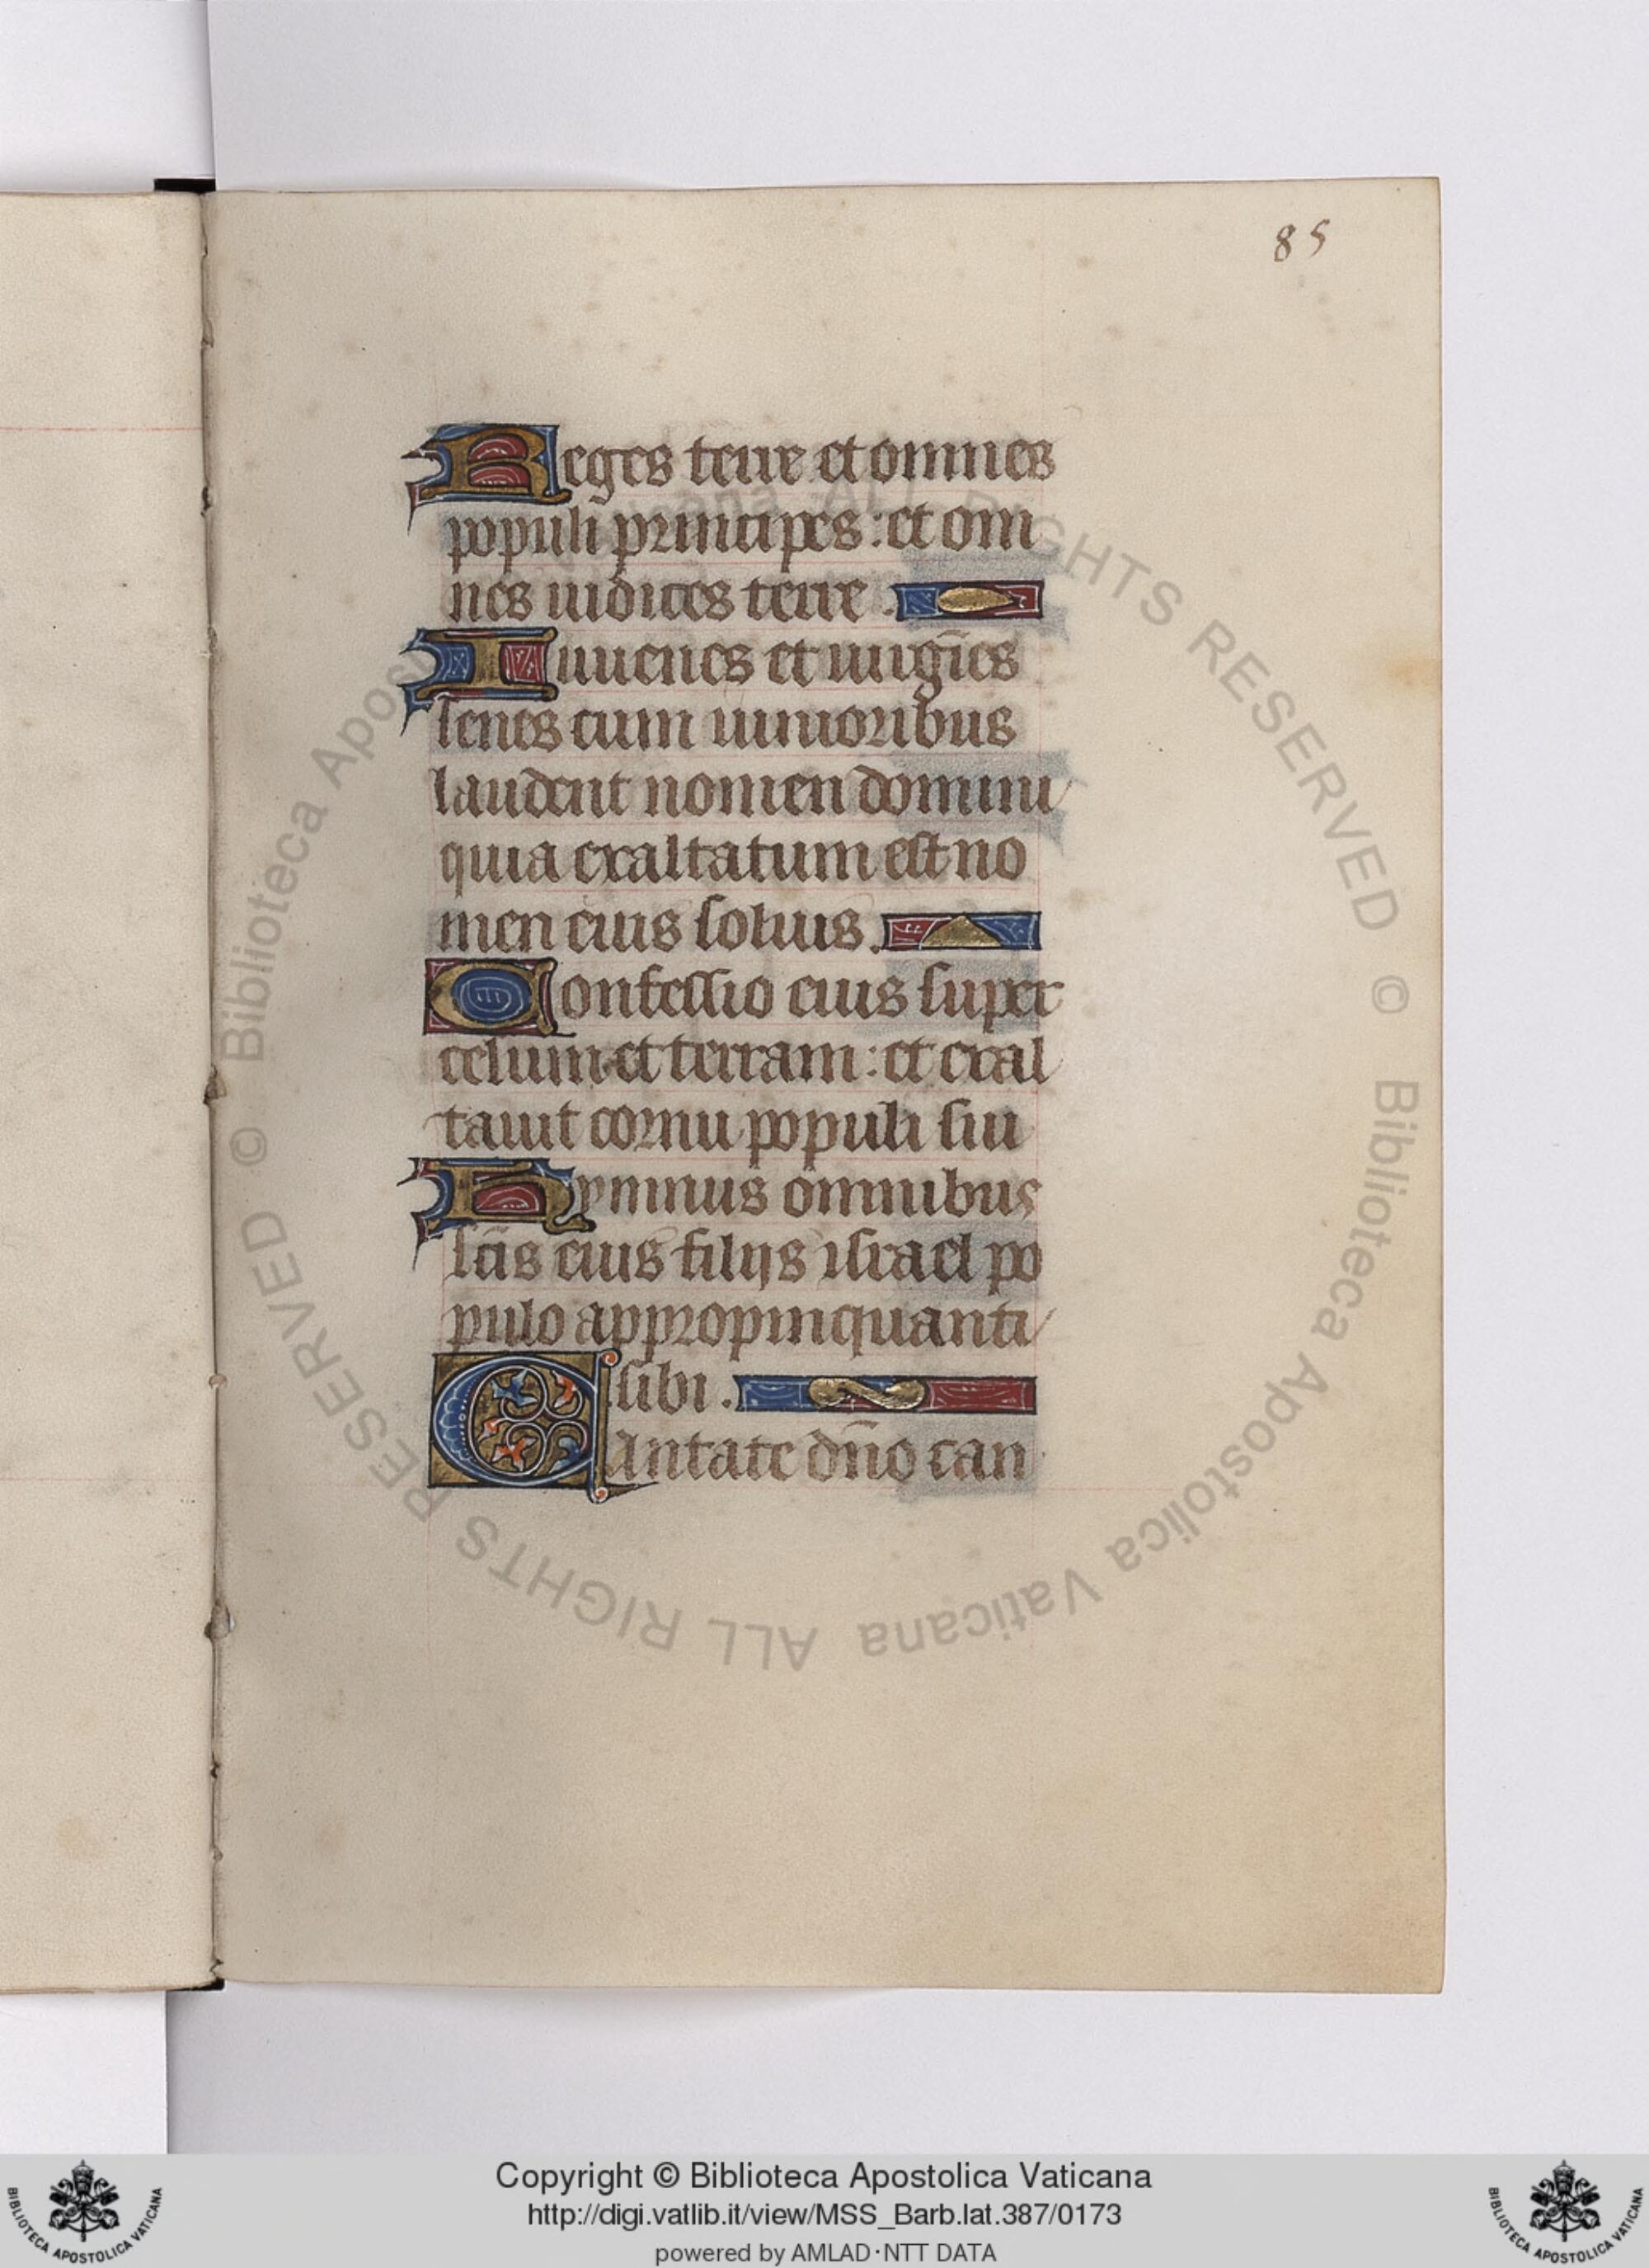 85
Reges terre et omnes
populi principes : et om
nes iudices terre .
Iuuenes et uirgīes
senes cum iunioribus
laudent nomen domini
quia exaltatum est no
men eius solius .
Confessio eius super
celum et terram : et exal
tauit cornu populi sui
Hymnus omnibus
sc̄is eius filijs israel po
pulo appropinquanti
sibi .
Cantate dn̄o can
© Biblioteca Apostolica Vaticana ALL RIGHTS RESERVED © Biblioteca Apostolica Vaticana ALL RIGHTS RESERVED
Copyright © Biblioteca Apostolica Vaticana
http://digi.vatlib.it/view/MSS_Barb.lat.387/0173
powered by AMLAD·NTT DATA
BIBLIOTECA APOSTOLICA VATICANA
BIBLIOTECA APOSTOLICA VATICANA